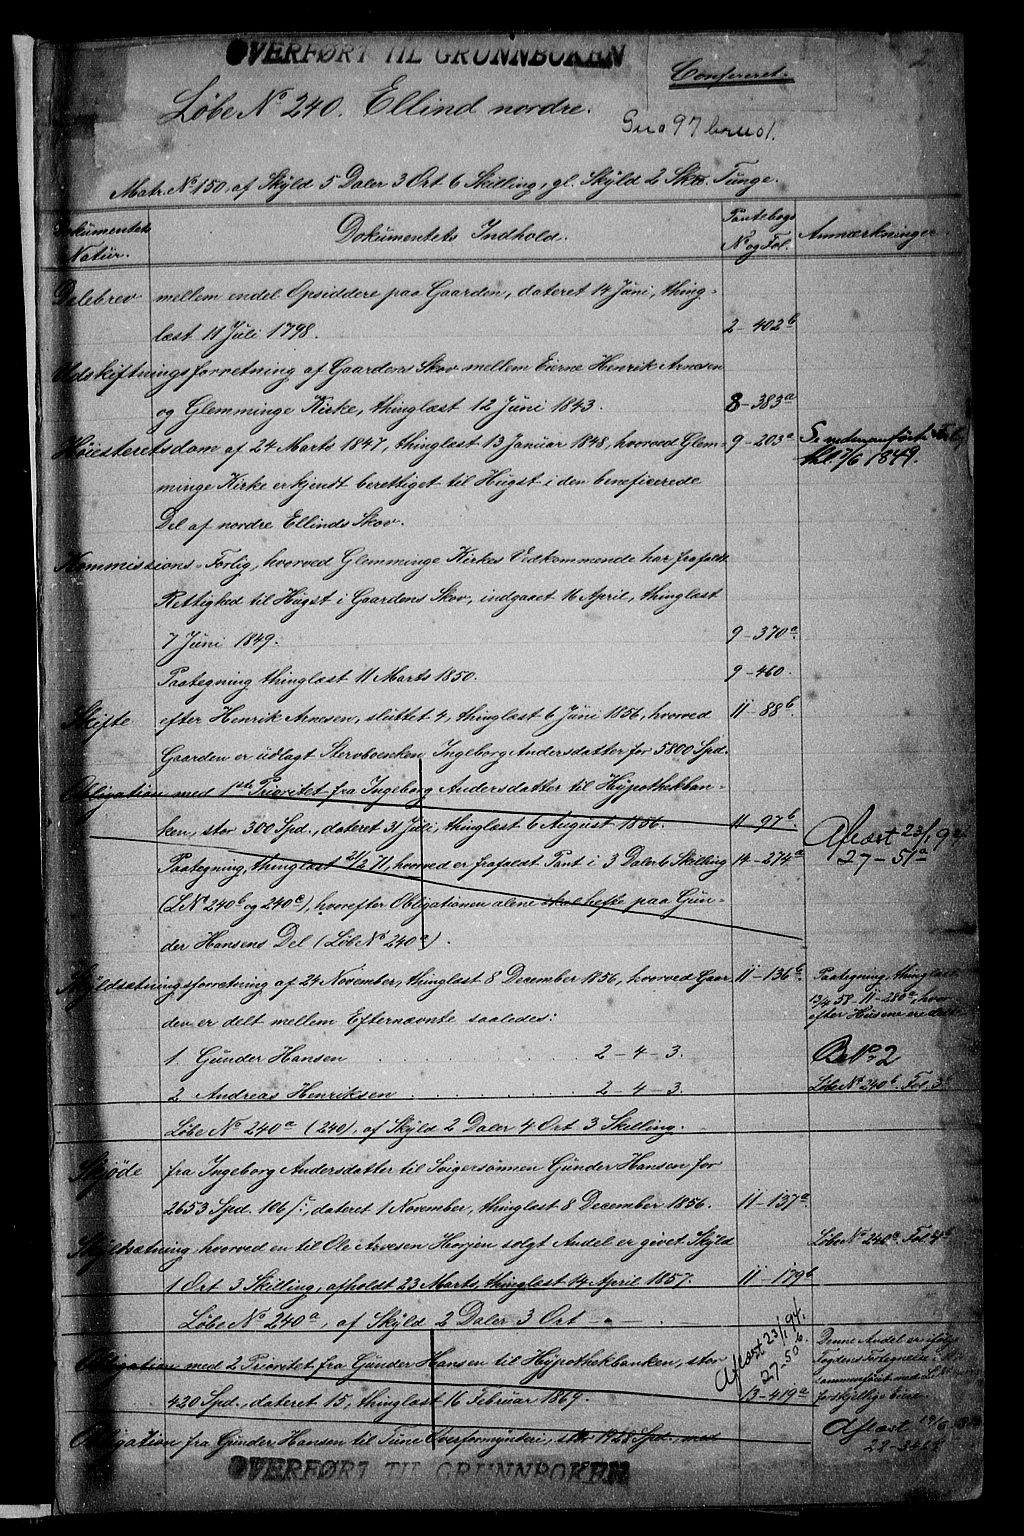 OVERFØRT TIL GRUNNBOKEN
Confereret.
Løbe No 240. Ellind nordre.
Gno 97 bruo 1.
Matr. No 150, af Skyld 5 Daler 3 Ort 6 Skilling, gl. Skyld 2 Skd. Tunge.
Dokumentets Natur.
Dokumentets Indhold.
Pantebogs No og Fol.
Anmærkninger.
Delebrev mellem endel Opsiddere paa Gaarden, dateret 14 Juni, thing-
læst 11 Juli 1798. 2-402b
Udskiftningsforretning af Gaardens Skov mellem Eierne Henrik Arnesen
og Glemminge Kirke, thinglæst 12 Juni 1843. 8-383a
Høiesteretsdom af 24 Marts 1847, thinglæst 13 Januar 1848, hvorved Glem- 9-203a
thl. 7/6 1849.
minge Kirke erkjendt berettiget til Hugst i den beneficerede
Del af nordre Ellinds Skov.
Kommissions-Forlig, hvorved Glemminge Kirkes Vedkommende har frafaldt
Rettighed til Hugst i Gaardens Skov, indgaaet 16 April, thinglæst
7 Juni 1849. 9-370a
Paategning thinglæst 11 Marts 1850. 9-460.
Skifte efter Henrik Arnesen, sluttet 4, thinglæst 6 Juni 1856, hvorved 11-88b
Gaarden er udlagt Stervboenken Ingeborg Andersdatter for 5800 Spd.
Obligation med 1ste Prioritet fra Ingeborg Andersdatter til Hypothekban-
ken, stor 300 Spd., dateret 31 Juli, thinglæst 6 August 1856. 11-97b.
Aflæst 23/1 94
27-51a
Paategning, thinglæst 21/2 71, hvorved er frafaldt Pant i 3 Daler 6 Skilling 14-274a
(LNo 240b og 240c), hvorefter Obligationen alene skal hefte paa Gun-
der Hansens Del (Løb No 240a).
Skyldsætningsforretning af 24 November, thinglæst 8 December 1856, hvorved Gaar 11-136b.
Paategning, thinglæst
13/4 58 11-280a, hvor-
efter Husene ere delt
den er delt mellem Efternævnte saaledes:
1 Gunder Hansen 2-4-3.
B No 2
2 Andreas Henriksen 2-4-3.
Løbe No 240b. Fol. 3b
Løbe No 240a (240), af Skyld 2 Daler 4 Ort 3 Skilling.
Skjøde fra Ingeborg Andersdatter til Svigersønnen Gunder Hansen for
2653 Spd. 106 s, dateret 1 November, thinglæst 8 December 1856. 11-137a
Skyldsætning, hvorved en til Ole Arvesen Horjen solgt Andel er givet Skyld
Løbe No 240c. Fol. 4b
1 Ort 3 Skilling, afholdt 23 Marts, thinglæst 14 April 1857. 11-179b
Løbe No 240a, af Skyld 2 Daler 3 Ort - " -
Obligation med 2 Prioritet fra Gunder Hansen til Hypothekbanken, stor
Aflæst 23/1 94.
27-50b.
420 Spd., dateret 15, thinglæst 16 Februar 1869. 13-419a
Denne Andel er ifølge
Fogdens Fortegnelse
sammenføiet med
forskjellige brug
Obligation fra Gunder Hansen til Tune Overformynderi, stor 1928 Spd., med
Aflæst 19/6
OVERFØRT TIL GRUNNBOKEN